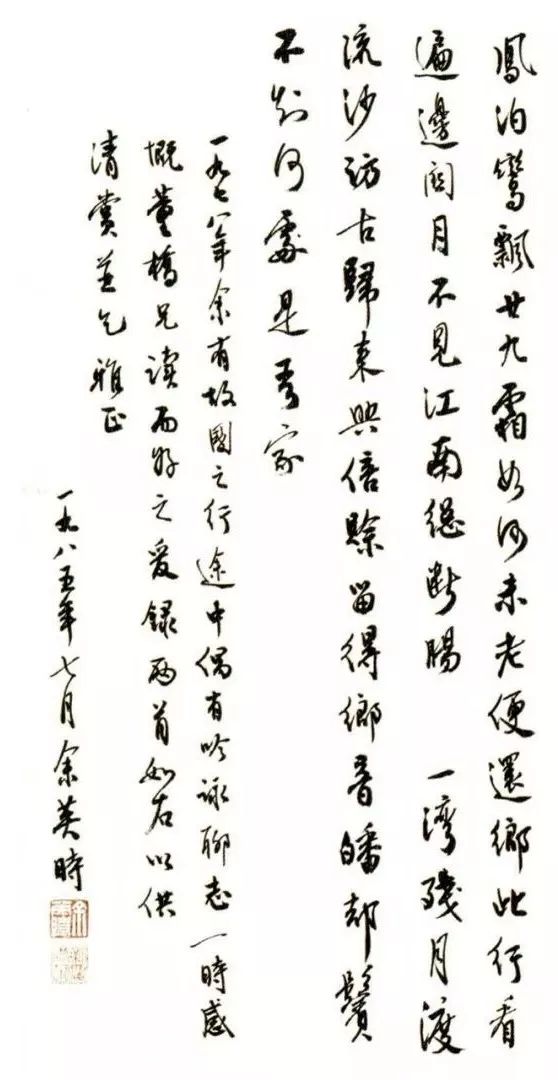 鳳泊鸞飄廿九霜如何未老便還鄉此行看
遍邊関月不見江南總斷腸　一湾殘月渡
流沙訪古歸來興倍賒留得鄉音皤却鬢
不知何處是吾家
一九七八年余有故國之行途中偶有吟詠聊志一時感
慨董橋兄讀而好之爰錄兩首如右以供
清賞並乞雅正
一九八五年七月余英時